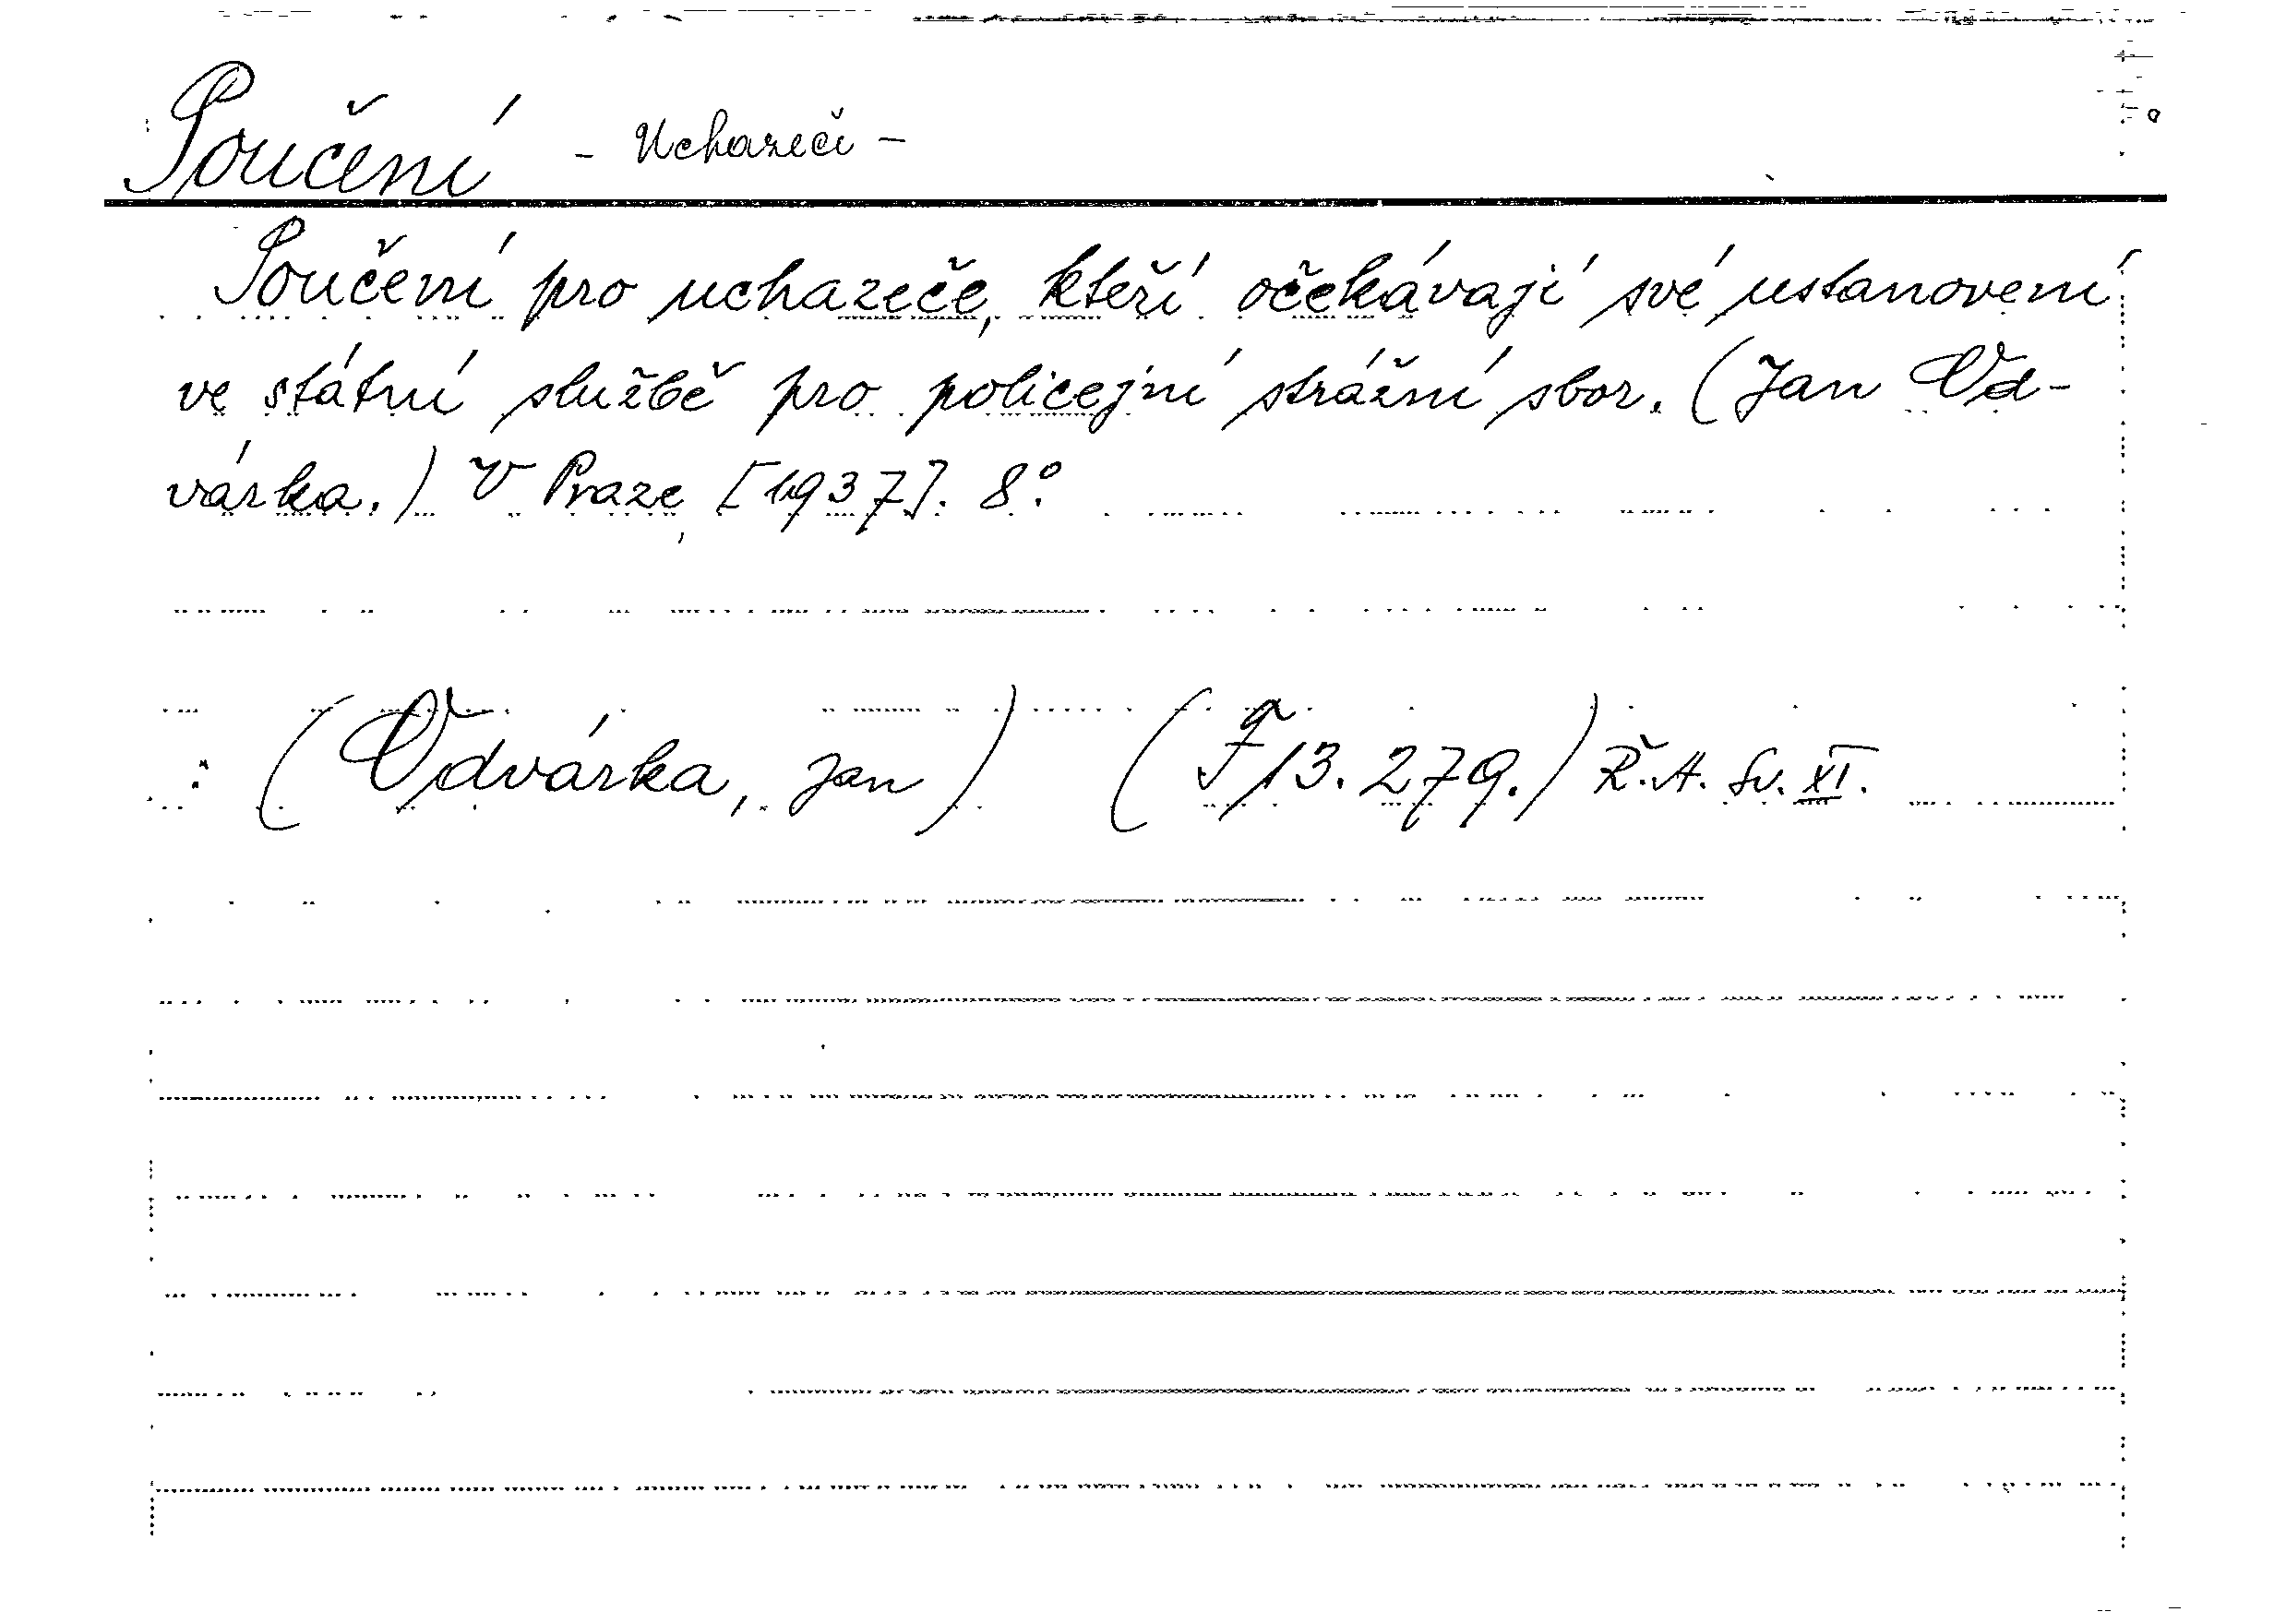 Poučení - Uchazeči -
Poučení pro uchazeče, kteří očekávají své ustanovení
ve státní službě pro policejní strážní sbor. (Jan Od-
várka.) V Praze, [1937]. 8°.
: (Odvárka, Jan) (F 13.279.) Ř.A. Sv. XI.